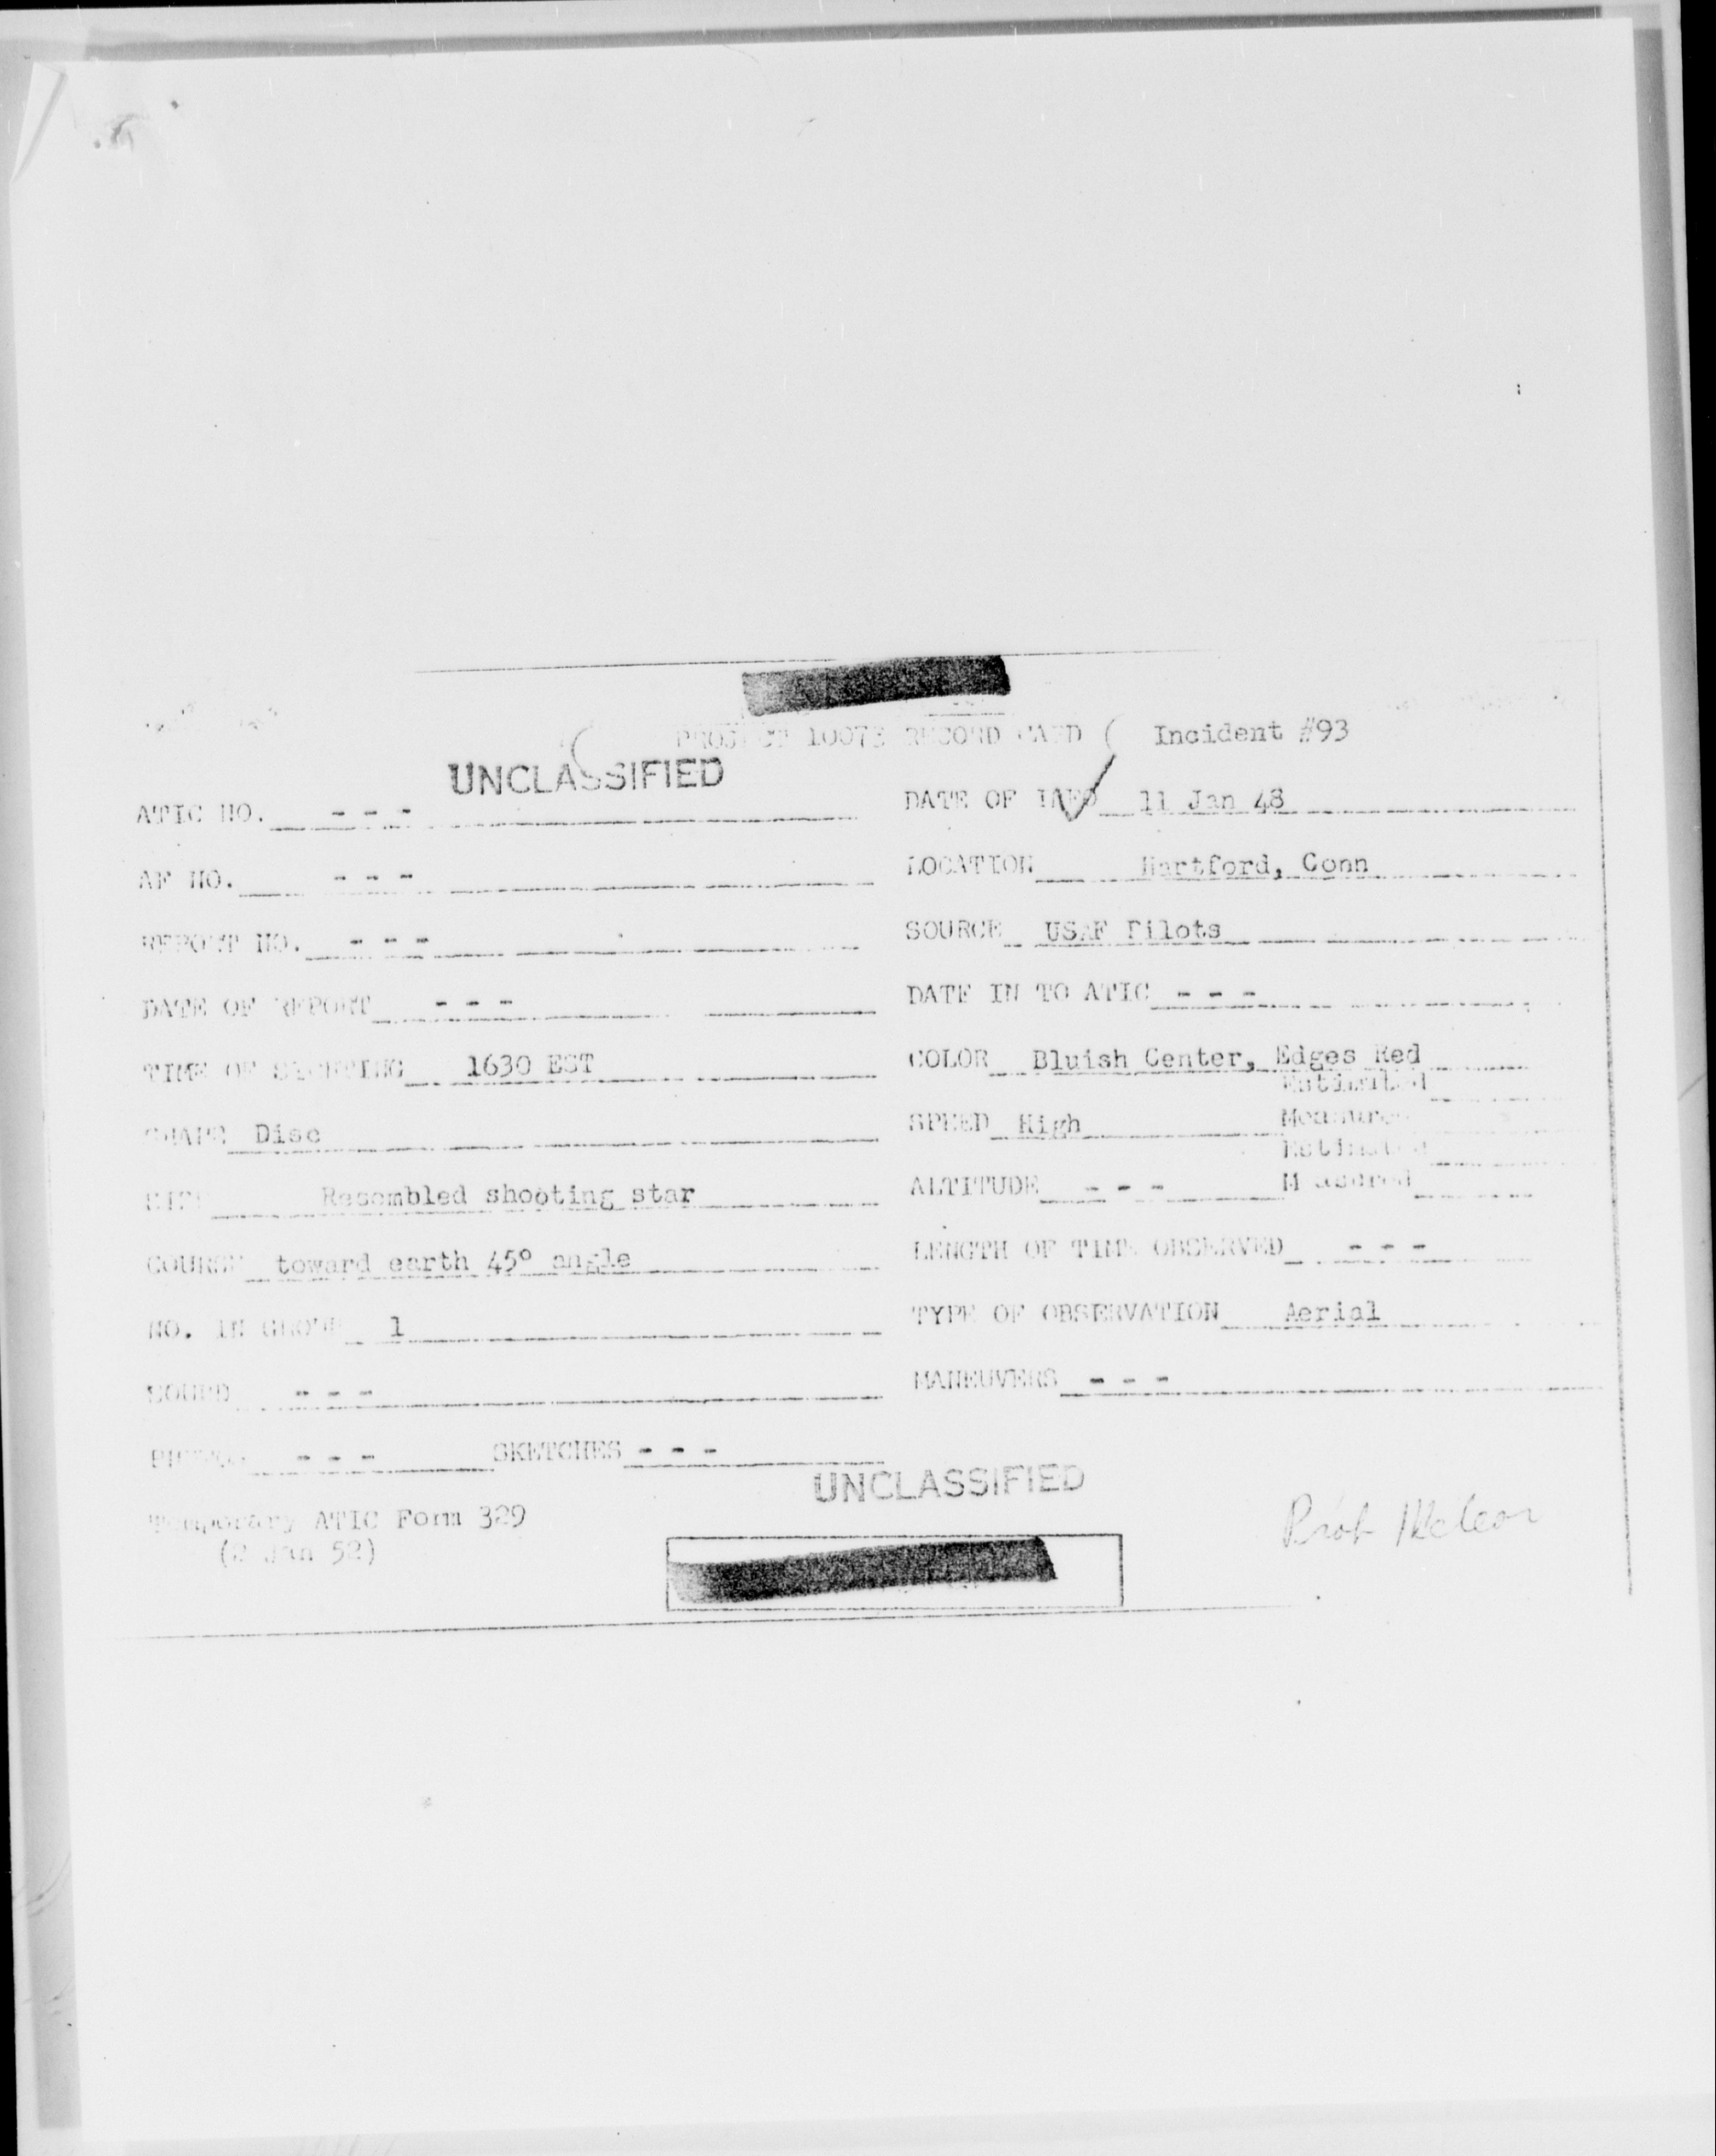 PROJECT 10073 RECORD CARD ( Incident #93
UNCLASSIFIED
ATIC NO. - - -
DATE OF INFO 11 Jan 48
AF NO. - - -
LOCATION Hartford, Conn
REPORT NO. - - -
SOURCE USAF Pilots
DATE OF REPORT - - -
DATE IN TO ATIC - - -
TIME OF SIGHTING 1630 EST
COLOR Bluish Center, Edges Red
Estimated
SHAPE Disc
SPEED High Measured
Estimated
SIZE Resombled shooting star
ALTITUDE - - - Measured
COURSE toward earth 45° angle
LENGTH OF TIME OBSERVED - - -
NO. IN GROUP 1
TYPE OF OBSERVATION Aerial
SOUND - - -
MANEUVERS - - -
PHOTOS - - - SKETCHES - - -
UNCLASSIFIED
Temporary ATIC Form 329
(2 Jan 52)
Prob Meteor